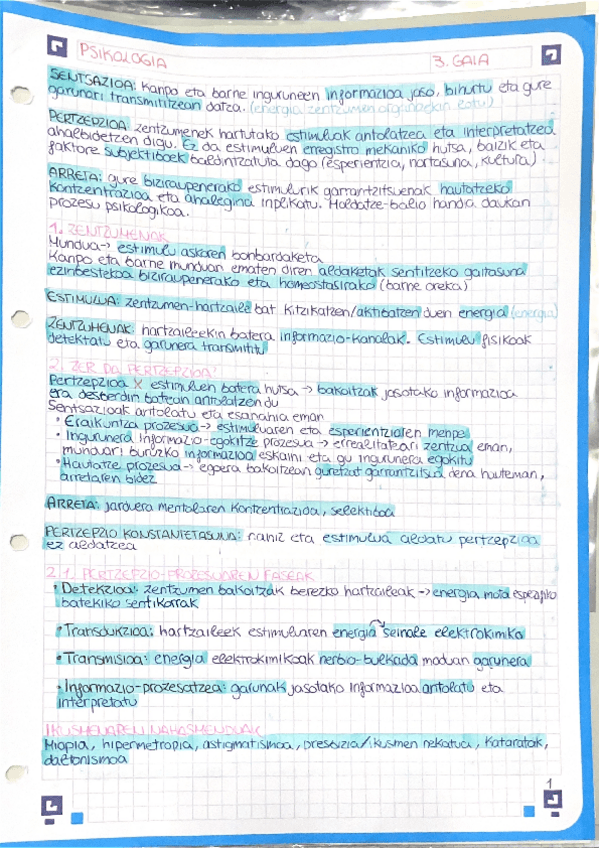 PSIKOLOGIA 3. GAIA
SENTSAZIOA: Kanpo eta barne inguruneen informazioa jaso, bihurtu eta gure
garunari transmititzean datza. (energia zentzumen organoekin lotu)
PERTZEPZIOA: zentzumenek hartutako estimuluak antolatzea eta interpretatzea
ahalbidetzen digu. Ez da estimuluen erregistro mekaniko hutsa, baizik eta
faktore subjektiboek baldintzatuta dago (esperientzia, nortasuna, kultura).
ARRETA: gure biziraupenerako estimulurik garrantzitsuenak hautatzeko
kontzentrazioa eta ahalegina inplikatu. Moldatze-balio handia daukan
prozesu psikologikoa.
1. ZENTZUMENAK
Mundua → estimulu askoren bonbardaketa
Kanpo eta barne munduan ematen diren aldaketak sentitzeko gaitasuna
ezinbestekoa biziraupenerako eta homeostasirako (barne oreka)
ESTIMULUA: zentzumen-hartzaile bat kitzikatzen/aktibatzen duen energia (energia)
ZENTZUMENAK: hartzaileekin batera informazio-kanalak. Estimulu fisikoak
detektatu eta garunera transmititu
2. ZER DA PERTZEPZIOA?
Pertzepzioa X estimuluen batera hutsa → bakoitzak jasotako informazioa
era desberdin batean antolatzen du
Sentsazioak antolatu eta esanahia eman
• Eraikuntza prozesua → estimuluaren eta esperientziaren menpe
• Ingurunera informazio-egokitze prozesua → errealitateari zentzua eman,
munduari buruzko informazioa eskaini eta gu ingurunera egokitu
• Hautatze prozesua → egoera bakoitzean guretzat garrantzitsua dena hauteman,
arretaren bidez
ARRETA: jarduera mentalaren kontzentrazioa, selektiboa
PERTZEPZIO KONSTANTETASUNA: nahiz eta estimulua aldatu pertzepzioa
ez aldatzea
2.1. PERTZEPZIO-PROZESUAREN FASEAK
• Detekzioa: zentzumen bakoitzak berezko hartzaileak → energia mota espezifiko
batekiko sentikorrak
• Transdukzioa: hartzaileek estimuluaren energia seinale elektrokimiko
• Transmisioa: energia elektrokimikoak nerbio-bulkada moduan garunera
• Informazio-prozesatzea: garunak jasotako informazioa antolatu eta
interpretatu
IKUSMENAREN NAHASMENDUAK
Miopia, hipermetropia, astigmatismoa, presbizia/ikusmen nekatua, kataratak,
daltonismoa
1